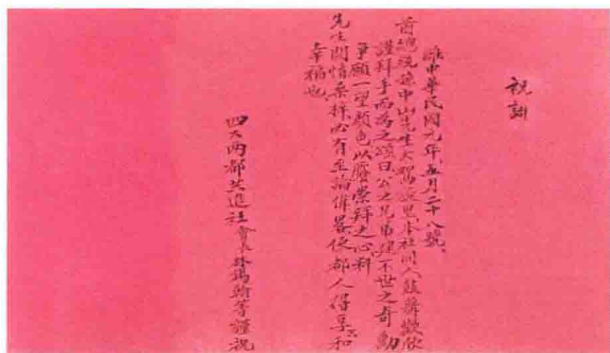 祝詞
維中華民國元年五月二十八號
前總統孫中山先生大駕旋里本社同人鼓舞歡欣
謹拜手而為之頌曰公之兄弟建不世之奇勳
爭願一望顏色以慰崇拜之心料
先生關情桑梓必有至論偉畧使都人得享共和
幸福也
四大兩都共進社會長林鴻翰等謹祝